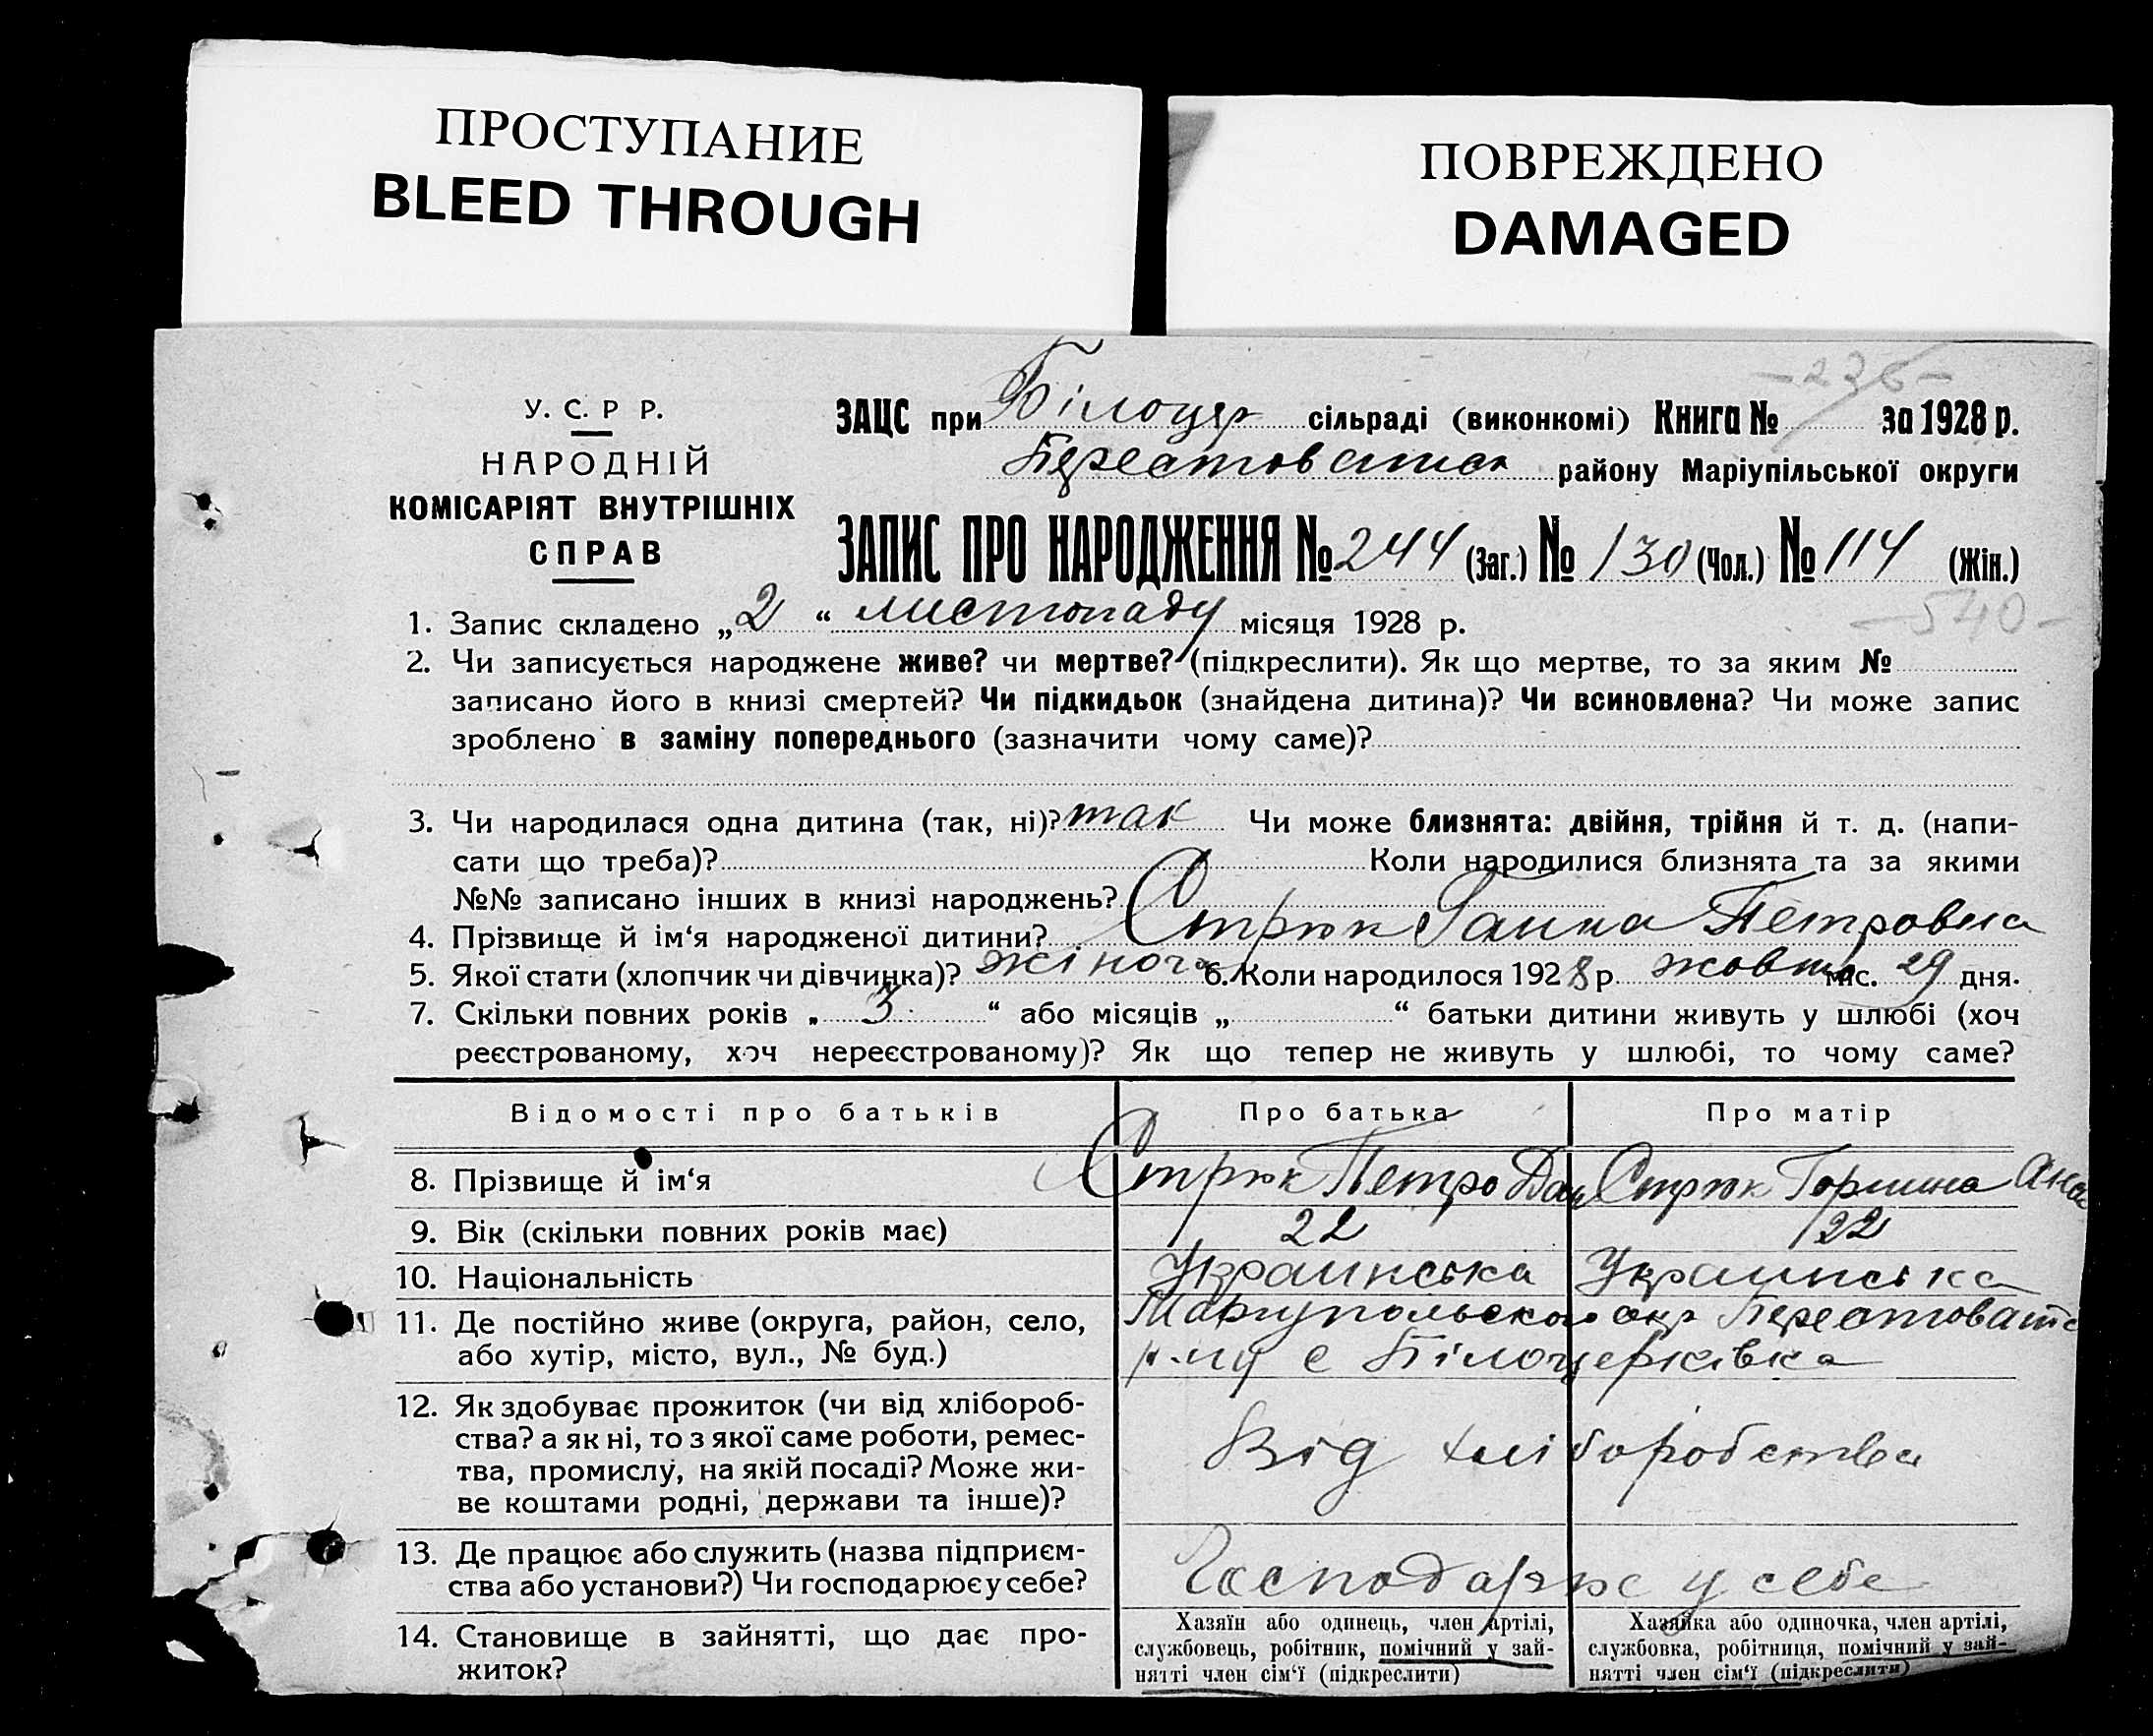 ПРОСТУПАНИЕ
BLEED THROUGH
ПОВРЕЖДЕНО
DAMAGED
-236-
У. С. Р Р.
НАРОДНІЙ
КОМІСАРІЯТ ВНУТРІШНІХ
СПРАВ
ЗАЦС при Білоцер сільраді (виконкомі) Книга № за 1928 р.
району Маріупільської округи
ЗАПИС ПРО НАРОДЖЕННЯ № 244 (Заг.) № 130 (Чол.) № 114 (Жін.)
-540-
1. Запис складено „2“ листопаду місяця 1928 р.
2. Чи записується народжене живе? чи мертве? (підкреслити). Як що мертве, то за яким №
записано його в книзі смертей? Чи підкидьок (знайдена дитина)? Чи всиновлена? Чи може запис
зроблено в заміну попереднього (зазначити чому саме)?
3. Чи народилася одна дитина (так, ні)? так Чи може близнята: двійня, трійня й т. д. (напи-
сати що треба)? Коли народилися близнята та за якими
№№ записано інших в книзі народжень?
4. Прізвище й ім‘я народженої дитини? Стрюк Ганна Петровна
5. Якої стати (хлопчик чи дівчинка)? жіноча 6. Коли народилося 1928 р. жовт міс. 29 дня.
7. Скільки повних років „ 3 “ або місяців „ “ батьки дитини живуть у шлюбі (хоч
реєстрованому, хоч нереєстрованому)? Як що тепер не живуть у шлюбі, то чому саме?
Відомості про батьків Про батька Про матір
8. Прізвище й ім‘я Стрюк Петро Дан Стрюк
9. Вік (скільки повних років має) 22 22
10. Національність Украинська Украинська
11. Де постійно живе (округа, район, село, Мариупольского окр Берестоватс
або хутір, місто, вул., № буд.) р-ну с Білоцерківка
12. Як здобуває прожиток (чи від хлібороб-
ства? а як ні, то з якої саме роботи, ремес-
тва, промислу, на якій посаді? Може жи-
ве коштами родні, держави та інше)?
Від хліборобства
13. Де працює або служить (назва підприєм-
ства або установи?) Чи господарює у себе?
Господарює у себе
14. Становище в зайнятті, що дає про-
житок?
Хазяїн або одинець, член артілі,
службовець, робітник, помічний у зай-
нятті член сім‘ї (підкреслити)
Хазяйка або одиночка, член артілі,
службовка, робітниця, помічний у зай-
нятті член сім‘ї (підкреслити)